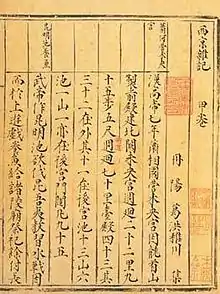 西京雜記
甲卷
丹陽 葛洪稚川 集
蕭何營未央
宮
漢高帝七年蕭相國營未央宮因龍首山
製前殿建北闕未央宮週迴二十二里九
十五步五尺週迴七十里臺殿四十三其
三十二在外其十一在後宮池十三山六
池一山一亦在後宮門闥凡九十五
昆明池養魚
武帝作昆明池欲伐昆吾夷教習水戰因
而於上遊戲養魚給諸陵廟祭祀餘付長